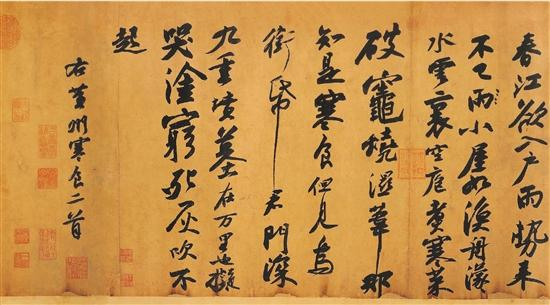 春江欲入戶雨勢来
不已雨小屋如漁舟濛〻
水雲裏空庖煮寒菜
破竈燒濕葦那
知是寒食但見烏
銜帋君門深
九重墳墓在万里也擬
哭塗窮死灰吹不
起
右黃州寒食二首